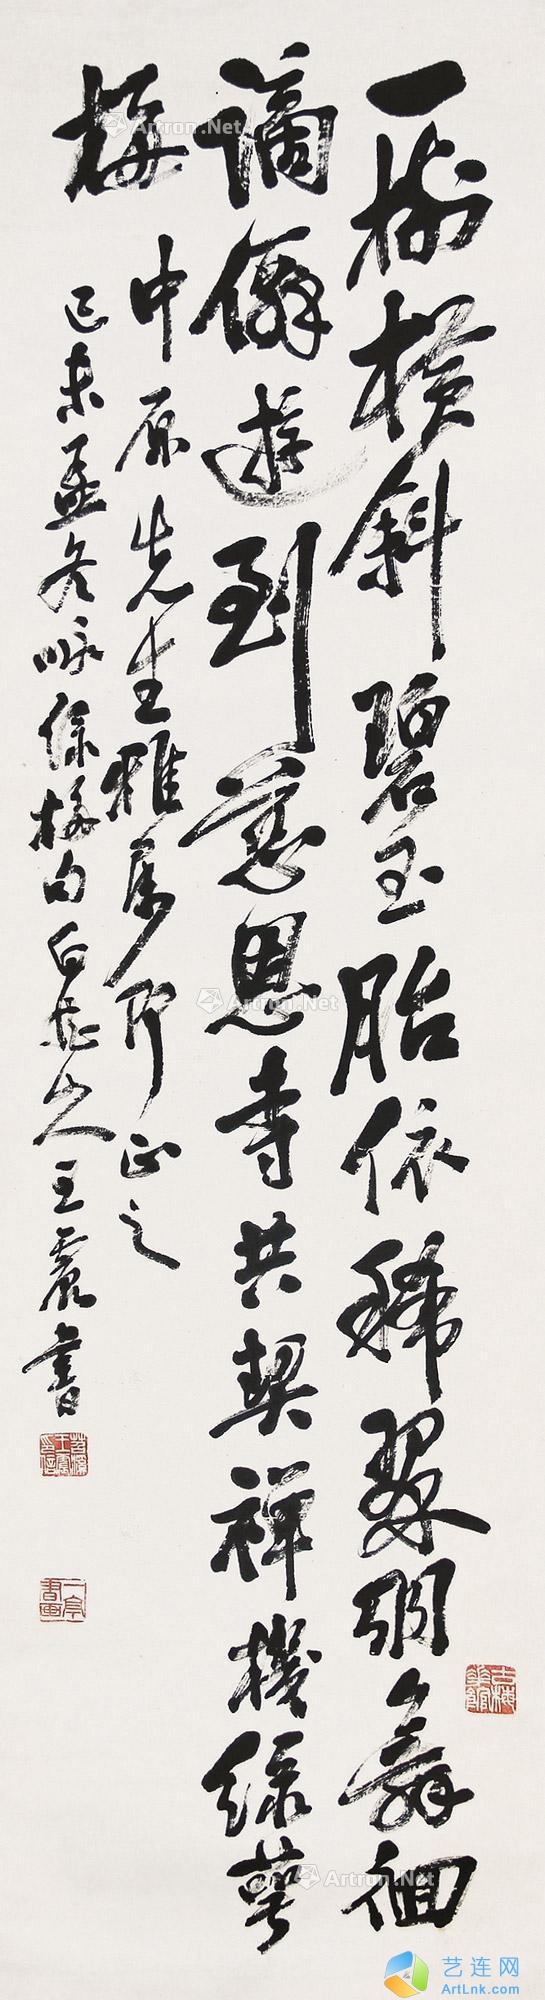 一樹橫斜碧玉胎依稀翠羽舞徊
謫僊遊到慈恩寺共契禪機綠萼
梅
中原先生雅属即正之
己未孟冬咏綠梅句白龍山人王震書
一亭書画
Artron.Net
Artron.Net
Artron.Net
Artron.Net
艺连网
ArtLnk.com